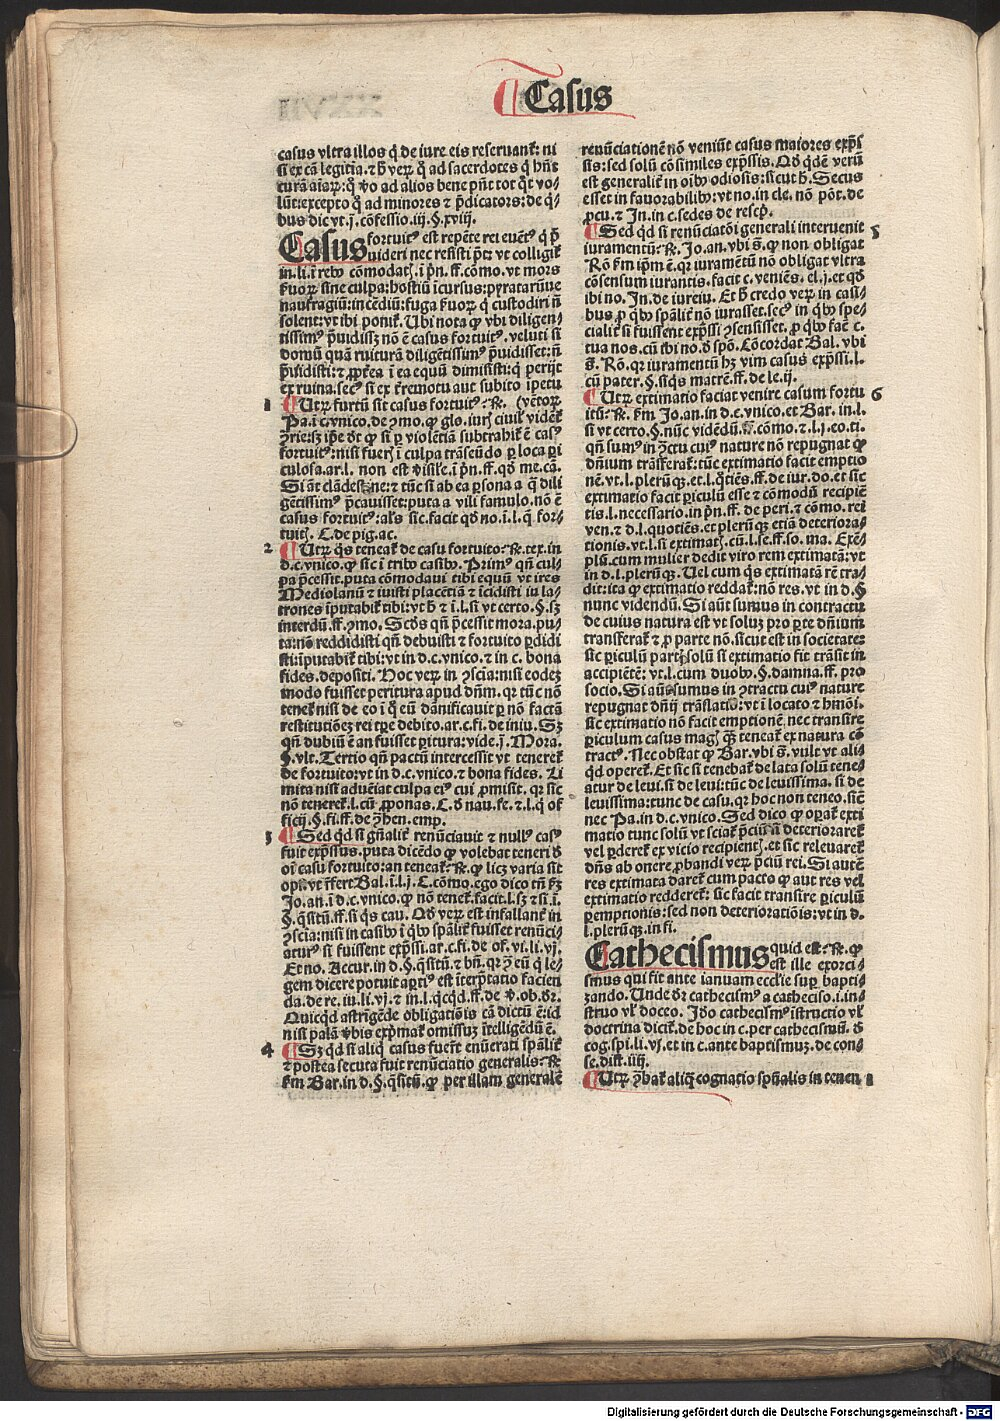 Casus
casus vltra illos q̄ de iure eis reseruant᷑: ni
si ex cā legitīa. ⁊ h̄ veꝝ q̄ ad sacerdotes q̄ hn̄t
curā aīaꝝ: q̄ ꝟo ad alios bene pn̄t tot q̄t vo⸗
lūt: excepto q̄ ad minores ⁊ p̄dicators: de q̄⸗
bus dic vt.j. cōfessio.iij.§.xviij.
Casus fortuitꝰ est repēte rei euētꝰ q̄ p̄
uideri nec resisti pōt: vt colligit᷑
in.li.i rebꝰ cōmodatꝭ.ī pn̄.ff.cōmo. vt mors
ẜuoꝝ sine culpa: hostiū īcursus: pyratarūue
naufragiū: incēdiū: fuga ẜuoꝝ q̄ custodiri ñ
solent: vt ibi ponit᷑. Ubi nota ꝙ vbi diligen⸗
tissimꝰ p̄uidissꝫ nō ē casus fortuitꝰ. veluti si
domū quā ruiturā diligētissimꝰ p̄uidisset: ñ
p̄uidisti: ⁊ ꝓpt̄ea ī ea equū dimisisti: q̄ perijt
ex ruina. secꝰ si ex t̄remotu aut subito īpetu
1 ¶ Utꝝ furtū sit casus fortuitꝰ: ℞. (vētoꝝ
Pa.ī c.vnico. de ꝯmo. ꝙ glo. iurꝭ ciuił vident᷑
ꝯ̄rie: sꝫ ip̄e dt̄ ꝙ si ꝑ violētiā subtrahit᷑ ē casꝰ
fortuitꝰ: nisi fuerꝭ ī culpa trāseūdo ꝑ loca ꝑi
culosa. ar.l. non est ꝟisiłe.ī pn̄.ff. qd̄ me.cā.
Si āt clādestine: ⁊ tūc si ab ea ꝑsona a q̄ dili
gētissimꝰ p̄cauisset: puta a vili famulo. nō ē
casus fortuitꝰ: als̄ sic. facit qd̄ no.ī.l.q̄ for⸗
tuitꝭ. C. de pig.ac.
2 ¶ Utꝝ q̄s teneat᷑ de casu fortuito: ℞. tex. in
d.c.vnico. ꝙ sic ī tribꝰ casibꝰ. Primꝰ qn̄ cul⸗
pa p̄cessit. puta cōmodaui tibi equū vt ires
Mediolanū ⁊ iuisti placētiā ⁊ īcidisti iu la⸗
trones īputabit᷑ tibi: vt h̄ ⁊ ī.l. si vt certo.§.sꝫ
interdū.ff.ꝯmo. Scd̄s qn̄ p̄cessit mora. pu⸗
ta: nō reddidisti qn̄ debuisti ⁊ fortuito ꝑdidi
sti: īputabit᷑ tibi: vt in d.c.vnico. ⁊ in c. bona
fides. depositi. Hoc veꝝ in ꝯscīa: nisi eodeꝫ
modo fuisset peritura apud dn̄m. qꝛ tūc nō
tenet᷑ nisi de eo ī q̄ eū dānificauit ꝑ nō factā
restitutiōeꝫ rei tꝑe debito. ar.c.fi. de iniu. Sꝫ
qn̄ dubiū ē an fuisset ꝑitura: vide.j. Mora.
§.vlt. Tertio qn̄ pactū intercessit vt teneret᷑
de fortuito: vt in d.c.vnico. ⁊ bona fides. Li
mita nisi adueīat culpa eiꝰ cui ꝓmisit. qꝛ sic
nō teneret᷑.l. cū ꝓponas. C. d̄ nau. fe. ⁊.l. q̄ of
ficij.§.fi.ff. de ꝯ̄hen. emp.
3 ¶ Sed qd̄ si gn̄alit᷑ renūciauit ⁊ nullꝰ casꝰ
fuit exp̄ssus. puta dicēdo ꝙ volebat teneri d̄
oī casu fortuito: an teneat᷑: ℞. ꝙ licꝫ varia sit
opi. vt r̄fert Bal. ī.l.j. C. cōmo. ego dico tn̄ ẜꝫ
Jo.an. ī d.c.vnico. ꝙ nō tenet᷑. facit.l.sꝫ ⁊ si.ī.
§.q̄sitū.ff. si q̄s cau. Qd̄ veꝝ est infallant᷑ in
ꝯscīa: nisi in casibꝰ ī qꝰ sp̄alit᷑ fuisset renūci⸗
atuꝝ si fuissent exp̄ssi. ar.c.fi. de of. vi. li. vj.
Et no. Accur. in d.§.q̄sitū. ⁊ bn̄. qꝛ ꝯ̄ eū q̄ le⸗
gem dicere potuit aꝑtiꝰ est īterp̄tatio facien
da. de re. iu. li. vj. ⁊ in.l. qcqd.ff. de ꝟ. ob. dr̄.
Quicqd astrīgēde obligatiōis cā dictū ē: id
nisi palā ꝟbis exp̄mat᷑ omissuꝫ ītelligēdū ē.
4 ¶ Sꝫ qd̄ si aliq̄ casus fuer̄t enūerati sp̄alit᷑
⁊ postea secuta fuit renūciatio generalis: ℞
ẜm Bar. in d.§.q̄sitū. ꝙ per illam generalē
renūciationē nō veniūt casus maiores exp̄s⸗
sis: sed solū cōsimiles exp̄ssis. Qd̄ qdē verū
est generalit᷑ in oībꝰ odiosis: sicut h̄. Secus
esset in fauorabilibꝰ: vt no. in cle. nō pōt. de
ꝓcu. ⁊ Jn. in c. sedes de rescp̄.
¶ Sed qd̄ si renūciatōi generali interuenit 5
iuramentū: ℞. Jo. an. vbi s̄. ꝙ non obligat
Rō ẜm ip̄m ē. qꝛ iuramētū nō obligat vltra
cōsensum iurantis. facit c. veniēs. el. j. et qd̄
ibi no. Jn. de iureiu. Et h̄ credo veꝝ in casi⸗
bus ꝓ qbꝰ sp̄alit᷑ nō iurasset. secꝰ in qbꝰ spe⸗
cialit᷑ si fuissent exp̄ssi ꝯsensisset. ꝓ qbꝰ faċ c.
tua nos. cū ibi no. d̄ spō. Cōcordat Bal. vbi
s̄. Rō. qꝛ iuramentū hꝫ vim casus exp̄ssi. l.
cū pater.§.siqs matrē.ff. de le.ij.
¶ Utꝝ extimatio faciat venire casum fortu 6
itū: ℞. ẜm Jo. an. in d.c.vnico. et Bar. in.l.
si vt certo.§.nūc vidēdū.ff.cōmo. ⁊.l.j.eo.ti.
qn̄ sumꝰ in ꝯctu cuiꝰ nature nō repugnat ꝙ
dn̄ium trāsferat᷑: tūc extimatio facit emptio
nē. vt.l. plerūqꝫ. et.l. q̄tiēs.ff. de iur. do. et sic
extimatio facit ꝑiculū esse ⁊ cōmodū recipiē
tis. l. necessario. in pn̄.ff. de peri. ⁊ cōmo. rei
ven. ⁊ d.l. quotiēs. et plerūqꝫ etiā deteriora⸗
tionis. vt.l. si extimatꝭ. cū.l. se.ff. so. ma. Exē⸗
plū. cum mulier dedit viro rem extimatā: vt
in d.l. plerūqꝫ. Uel cum q̄s extimatā rē tra⸗
dit: ita ꝙ extimatio reddat᷑: nō res. vt in d.§
nunc videndū. Si aūt sumus in contractu
de cuius natura est vt soluꝫ pro ꝑte dn̄ium
transferat᷑ ⁊ ꝓ parte nō. sicut est in societate:
sic ꝑiculū partꝭ solū si extimatio fit trāsit in
accipiētē: vt.l. cum duobꝰ.§.damna.ff. pro
socio. Si aūt sumus in ꝯtractu cuiꝰ nature
repugnat dn̄ij trāslatio: vt ī locato ⁊ hmōi.
sic extimatio nō facit emptionē. nec transire
ꝑiculum casus magꝭ qꝫ teneat᷑ ex natura cō
tractꝰ. Nec obstat ꝙ Bar. vbi s̄. vult vt ali⸗
qd operet᷑. Et sic si tenebat᷑ de lata solū tene⸗
atur de leui. si de leui: tūc de leuissima. si de
leuissima: tunc de casu. qꝛ hoc non teneo. sic̄
nec Pa. in d.c.vnico. Sed dico ꝙ oꝑat᷑ exti
matio tunc solū vt sciat᷑ p̄ciū si deterioraret᷑
vel ꝑderet᷑ ex vitio recipientꝭ. et sic releuaret᷑
dn̄s ab onere ꝓbandi veꝝ p̄ciū rei. Si autē
res extimata daret᷑ cum pacto ꝙ aut res vel
extimatio redderet᷑: sic facit transire ꝑiculū
ꝑemptionis: sed non deterioratiōis: vt in d.
l. plerūqꝫ. in fi.
Cathecismus quid est: ℞. ꝙ
est ille exorci⸗
smus qui fit ante ianuam eccl̄ie suꝑ bapti⸗
zando. Unde dr̄ cathecismꝰ a catheciso. i. in⸗
struo vł doceo. Jd̄o cathecismꝰ īstructio vł
doctrina dicit᷑. de hoc in c. per cathecismū. d̄
cog. spi. li. vj. et in c. ante baptismuꝫ. de con⸗
se. dist. iiij.
¶ Utꝝ ꝓbat᷑ aliq̄ cognatio spūalis in tenen 1